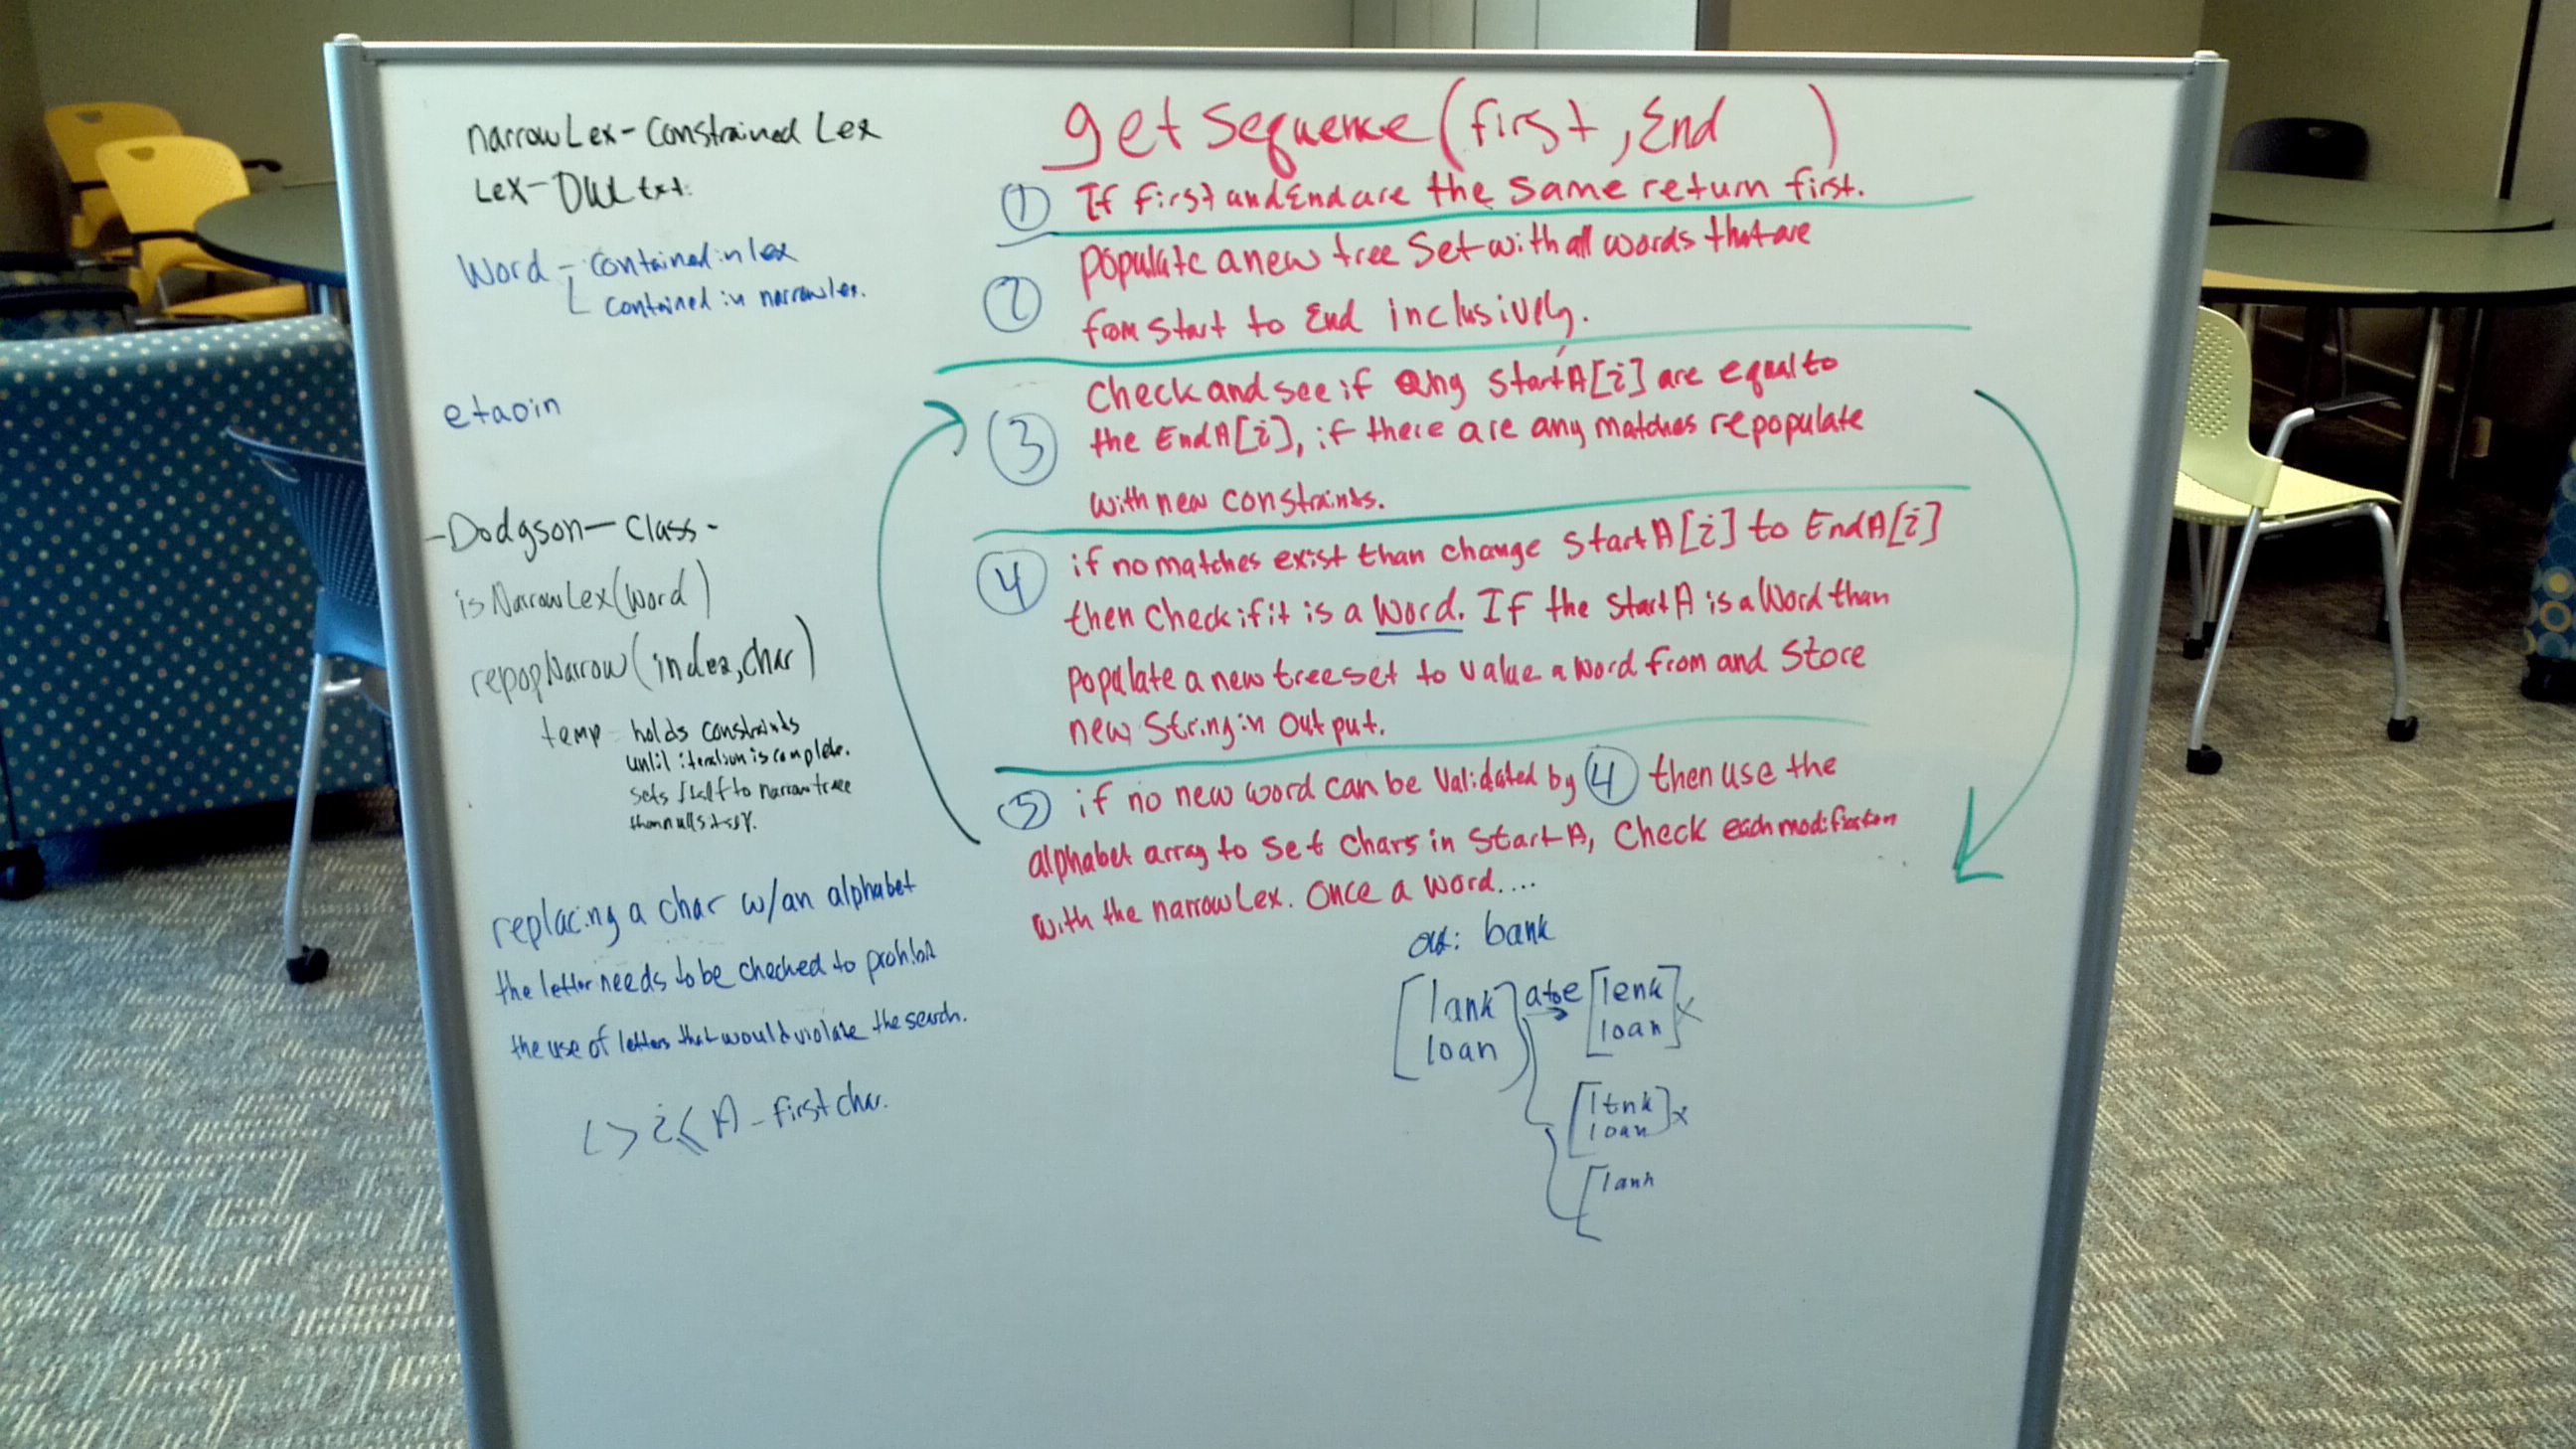 narrowLex-Constrained Lex
Lex-OWL txt.
Word - contained in lex
contained in narrowlex.
etaoin
-Dodgson-Class-
isNarrowLex(word)
repopNarrow(index,char)
temp - holds constraints
until iteration is complete.
sets itself to narrow tree
then nulls itself.
replacing a char w/an alphabet
the letter needs to be checked to prohibit
the use of letters that would violate the search.
A - first char.
getSequence(first, End )
① If first and End are the same return first.
② populate a new tree Set with all words that are
from start to End inclusively.
③ Check and see if any StartA[i] are equal to
the EndA[i], if there are any matches repopulate
with new constraints.
④ if no matches exist than change StartA[i] to EndA[i]
then check if it is a Word. If the StartA is a Word than
populate a new treeset to value a word from and store
new String in Output.
⑤ if no new word can be validated by ④ then use the
alphabet array to set chars in StartA, Check each modification
with the narrowLex. Once a word....
out: bank
lank a to e lenk x
loan loan
ltnk x
loan
lank